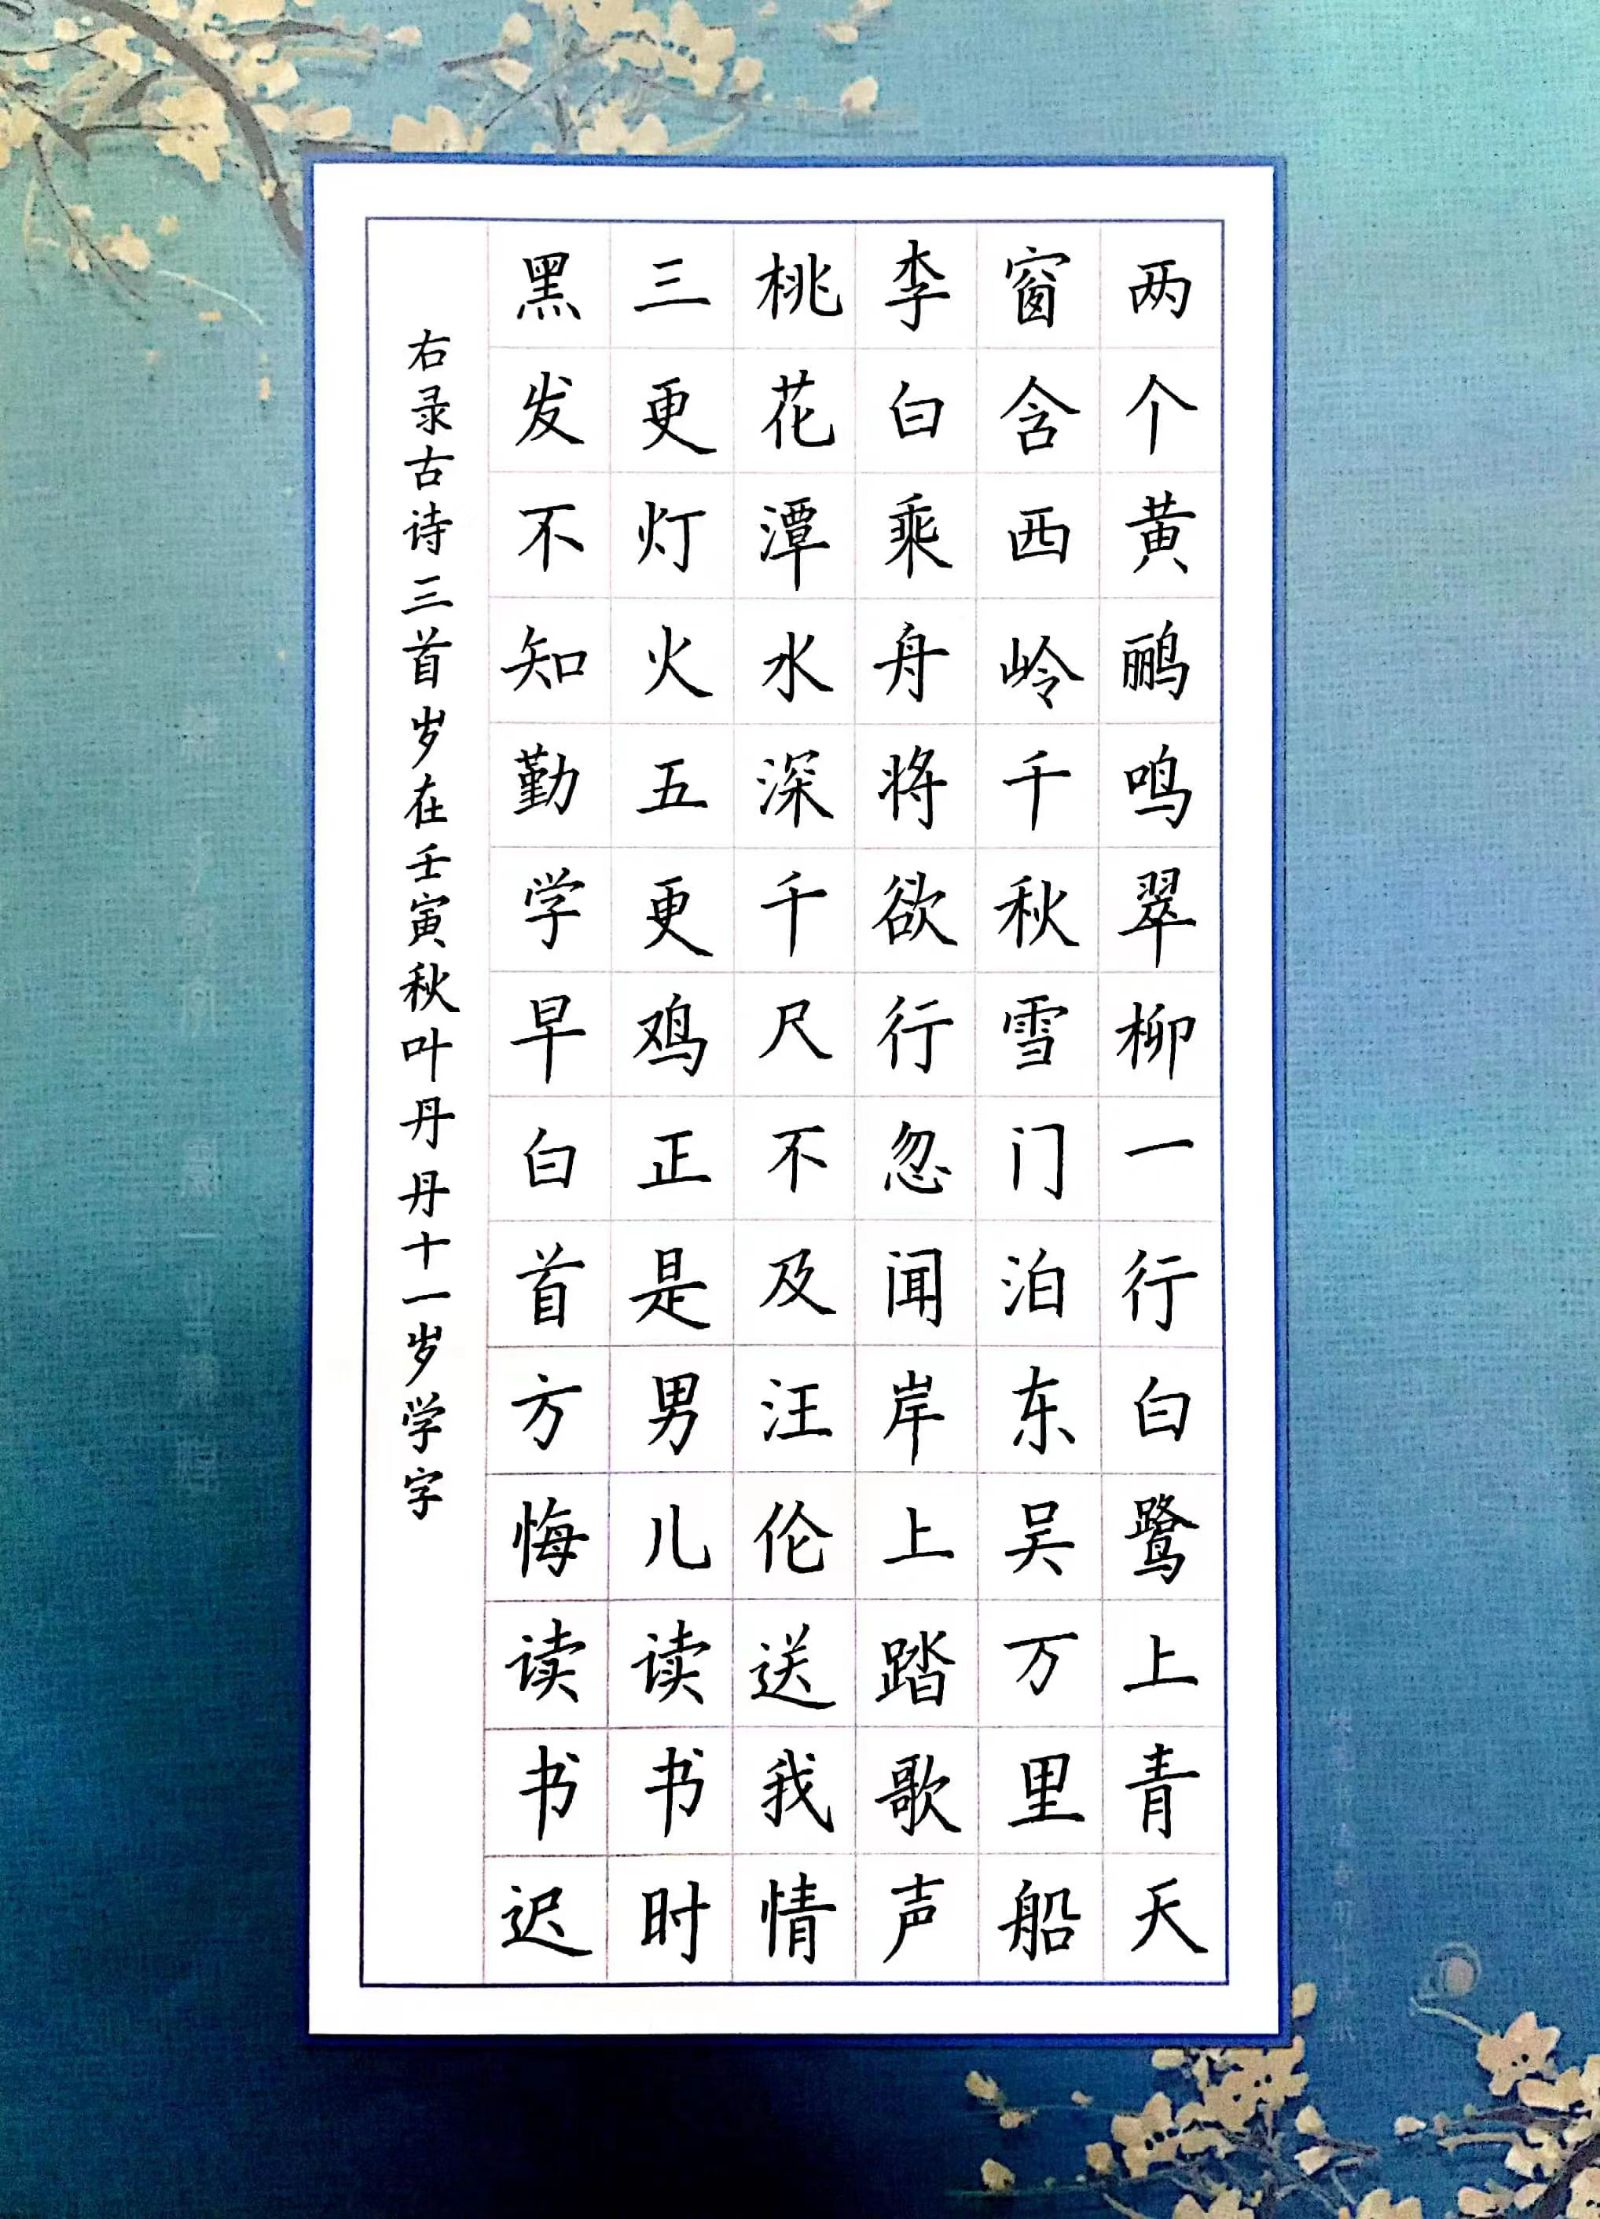 两个黄鹂鸣翠柳一行白鹭上青天
窗含西岭千秋雪门泊东吴万里船
李白乘舟将欲行忽闻岸上踏歌声
桃花潭水深千尺不及汪伦送我情
三更灯火五更鸡正是男儿读书时
黑发不知勤学早白首方悔读书迟
右录古诗三首岁在壬寅秋叶丹丹十一岁学字